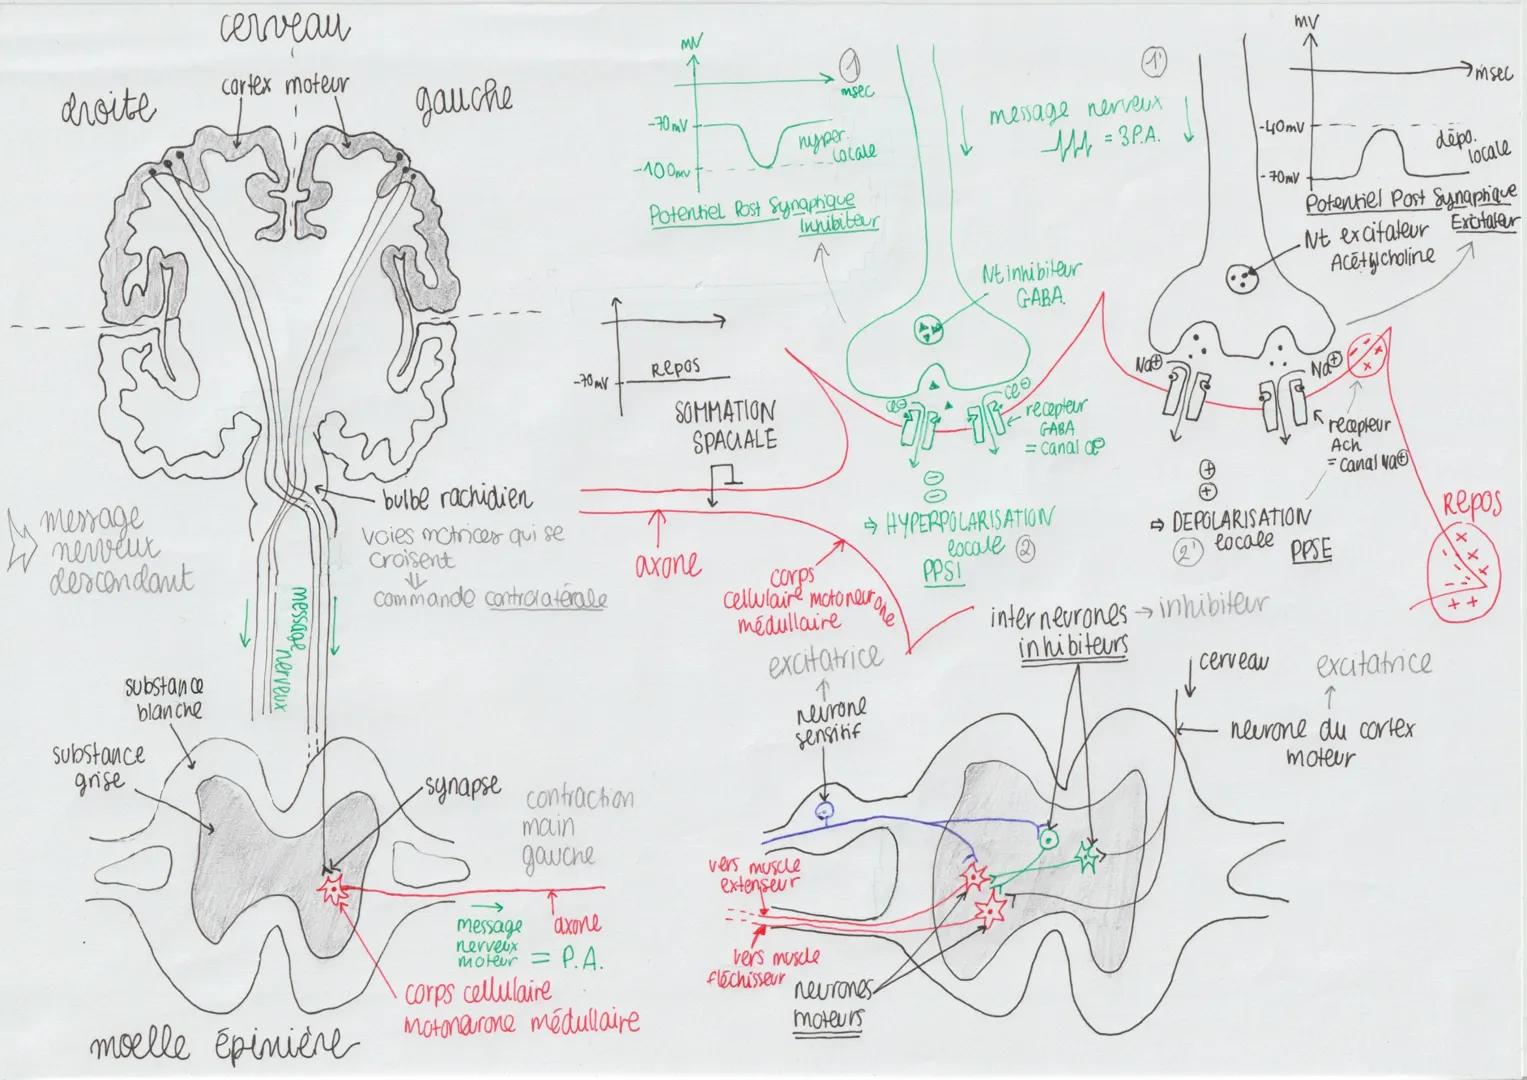 cerveau
cortex moteur
droite
gauche
bulbe rachidien
voies motrices qui se
croisent
⇓
commande controlatérale
message
nerveux
descendant
message nerveux
substance
blanche
substance
grise
synapse
contraction
main
gauche
message
nerveux
moteur = P.A.
axone
corps cellulaire
motoneurone médullaire
moelle épinière
mV
1
msec
-70mV
hyper.
locale
-100mV
Potentiel Post Synaptique
Inhibiteur
message nerveux
= 3P.A.
1'
mV
msec
-40mV
dépo.
locale
-70mV
Potentiel Post Synaptique
Excitateur
Nt excitateur
Acétylcholine
Nt inhibiteur
GABA
-70mV
Repos
SOMMATION
SPACIALE
axone
corps
cellulaire motoneurone
médullaire
Cl⊖
Cl⊖
recepteur
GABA
= canal Cl⊖
⊖
⊖
⇒ HYPERPOLARISATION
locale 2
PPSI
Na⊕
Na⊕
recepteur
Ach
= canal Na⊕
⊕
⊕
⇒ DEPOLARISATION
2' locale PPSE
Repos
interneurones → inhibiteur
inhibiteurs
excitatrice
↑
neurone
sensitif
cerveau
excitatrice
↑
neurone du cortex
moteur
vers muscle
extenseur
vers muscle
fléchisseur
neurones
moteurs